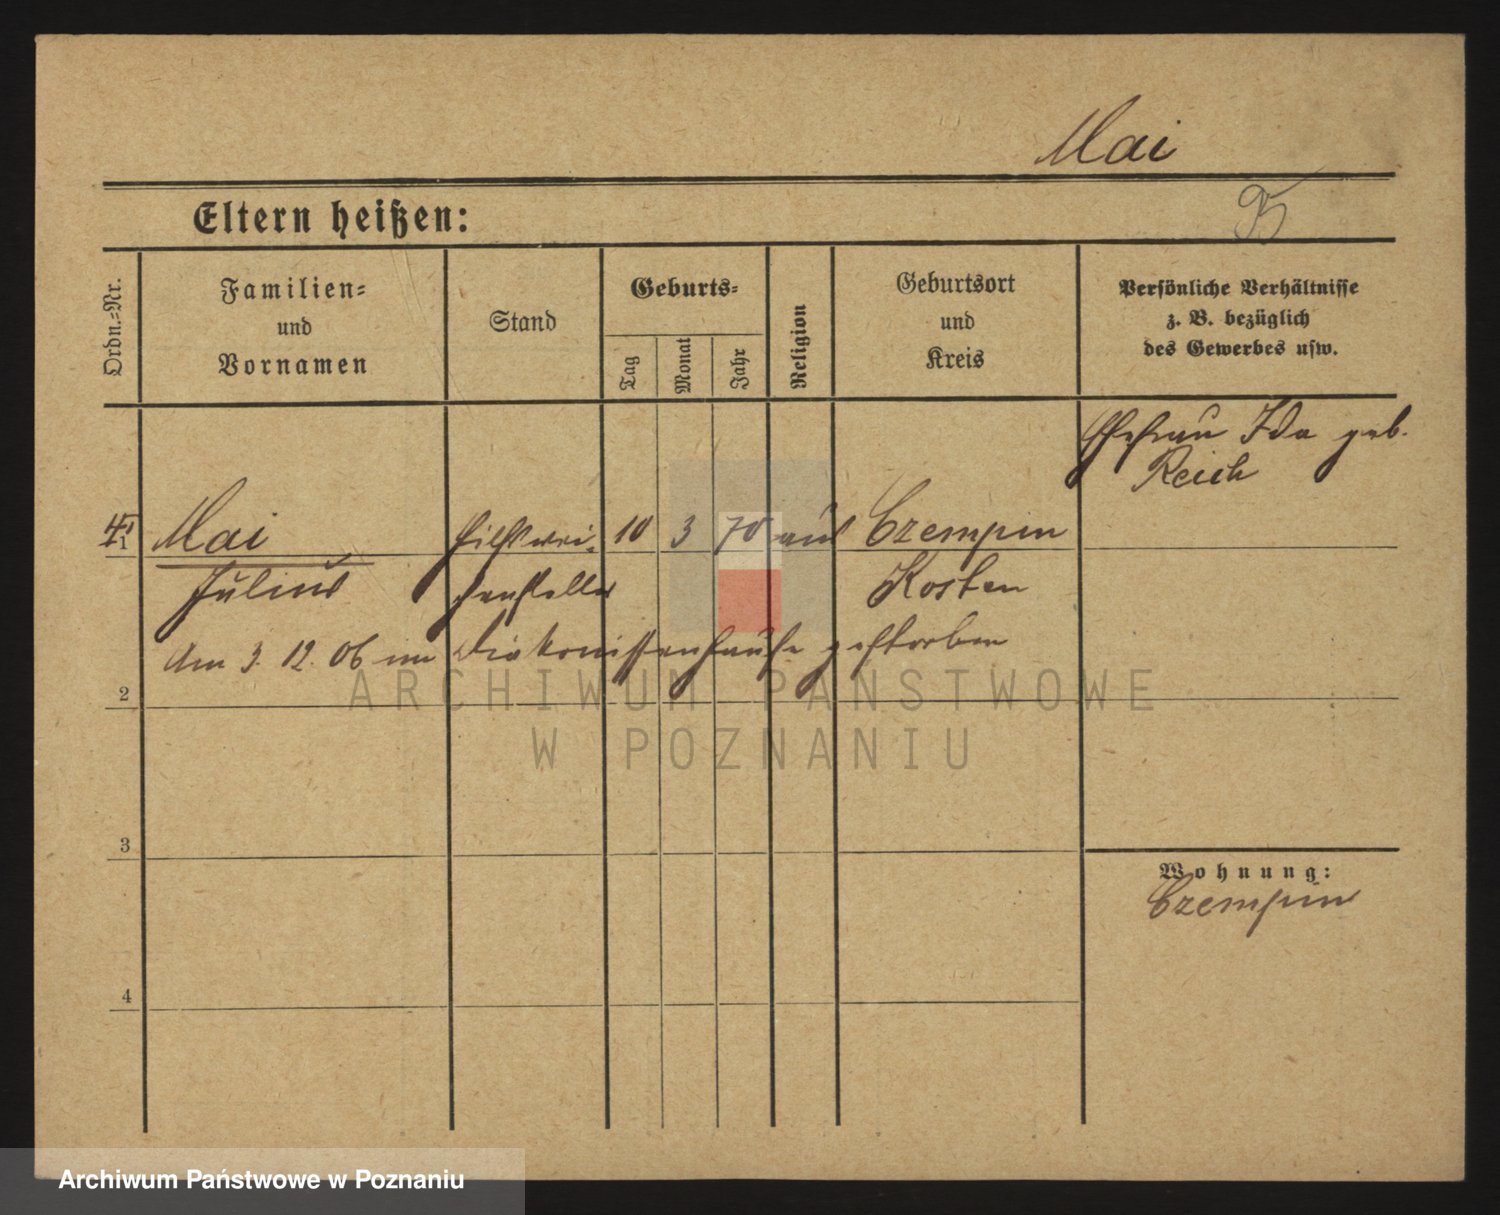 Mai
Eltern heißen:
Ordn.-Nr.
Familien-
und
Vornamen
Stand
Geburts-
Tag
Monat
Jahr
Religion
Geburtsort
und
Kreis
Persönliche Verhältnisse
z. B. bezüglich
des Gewerbes usw.
Ehefrau Ida geb.
Reich
1 Mai Hilfswei- 10 3 70 Czempin
Julius chensteller Kosten
Am 3. 12. 06 im Diakonissenhause gestorben
2
ARCHIWUM PAŃSTWOWE
W POZNANIU
3
Wohnung:
Czempin
4
Archiwum Państwowe w Poznaniu